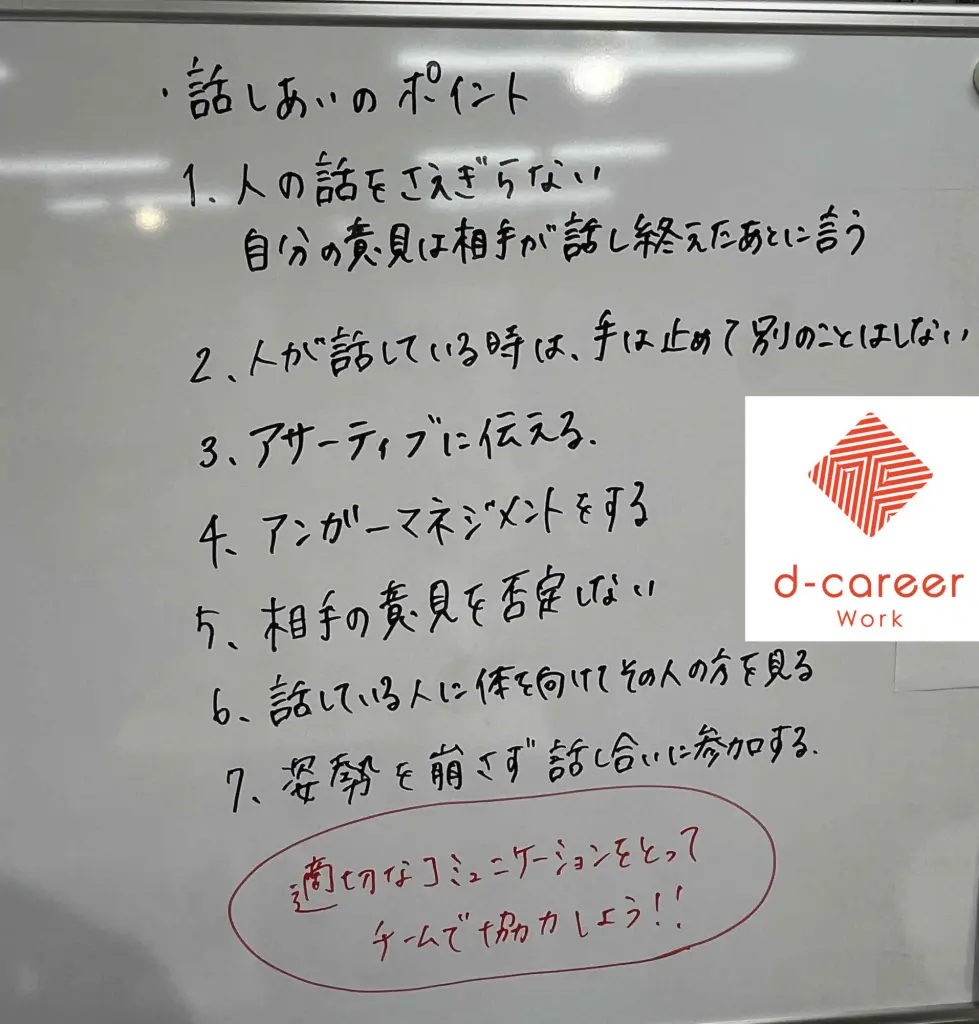 ・話しあいのポイント
1. 人の話をさえぎらない
自分の意見は相手が話し終えたあとに言う
2、人が話している時は、手は止めて別のことはしない
3、アサーティブに伝える.
4、アンガーマネジメントをする
5、相手の意見を否定しない
6、話している人に体を向けてその人の方を見る
7、姿勢を崩さず話し合いに参加する.
適切なコミュニケーションをとって
チームで協力しよう!!
d-career
Work